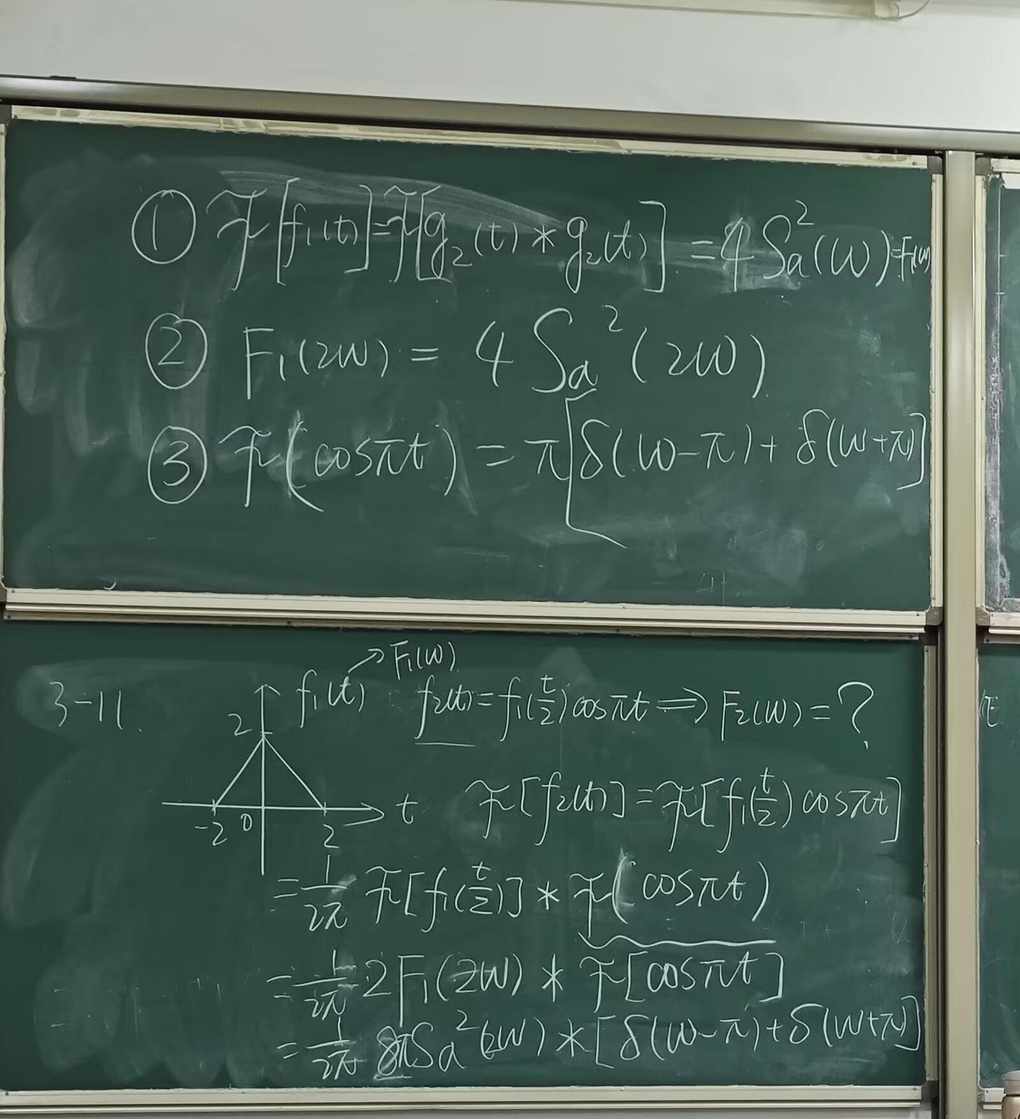 ① ℱ[f₁(t)]=ℱ[g₂(t) * g₂(t)] = 4Sa²(ω)=F₁(ω)
② F₁(2ω) = 4Sa²(2ω)
③ ℱ(cosπt) = π[δ(ω-π)+δ(ω+π)]
3-11 f₁(t) → F₁(ω) f₂(t)=f₁(t/2)cosπt ⇒ F₂(ω)=?
2
-2 0 2 t
ℱ[f₂(t)]=ℱ[f₁(t/2)cosπt]
=1/2π ℱ[f₁(t/2)] * ℱ(cosπt)
=1/2π 2F₁(2ω) * ℱ[cosπt]
=1/2π 8πSa²(2ω) * [δ(ω-π)+δ(ω+π)]